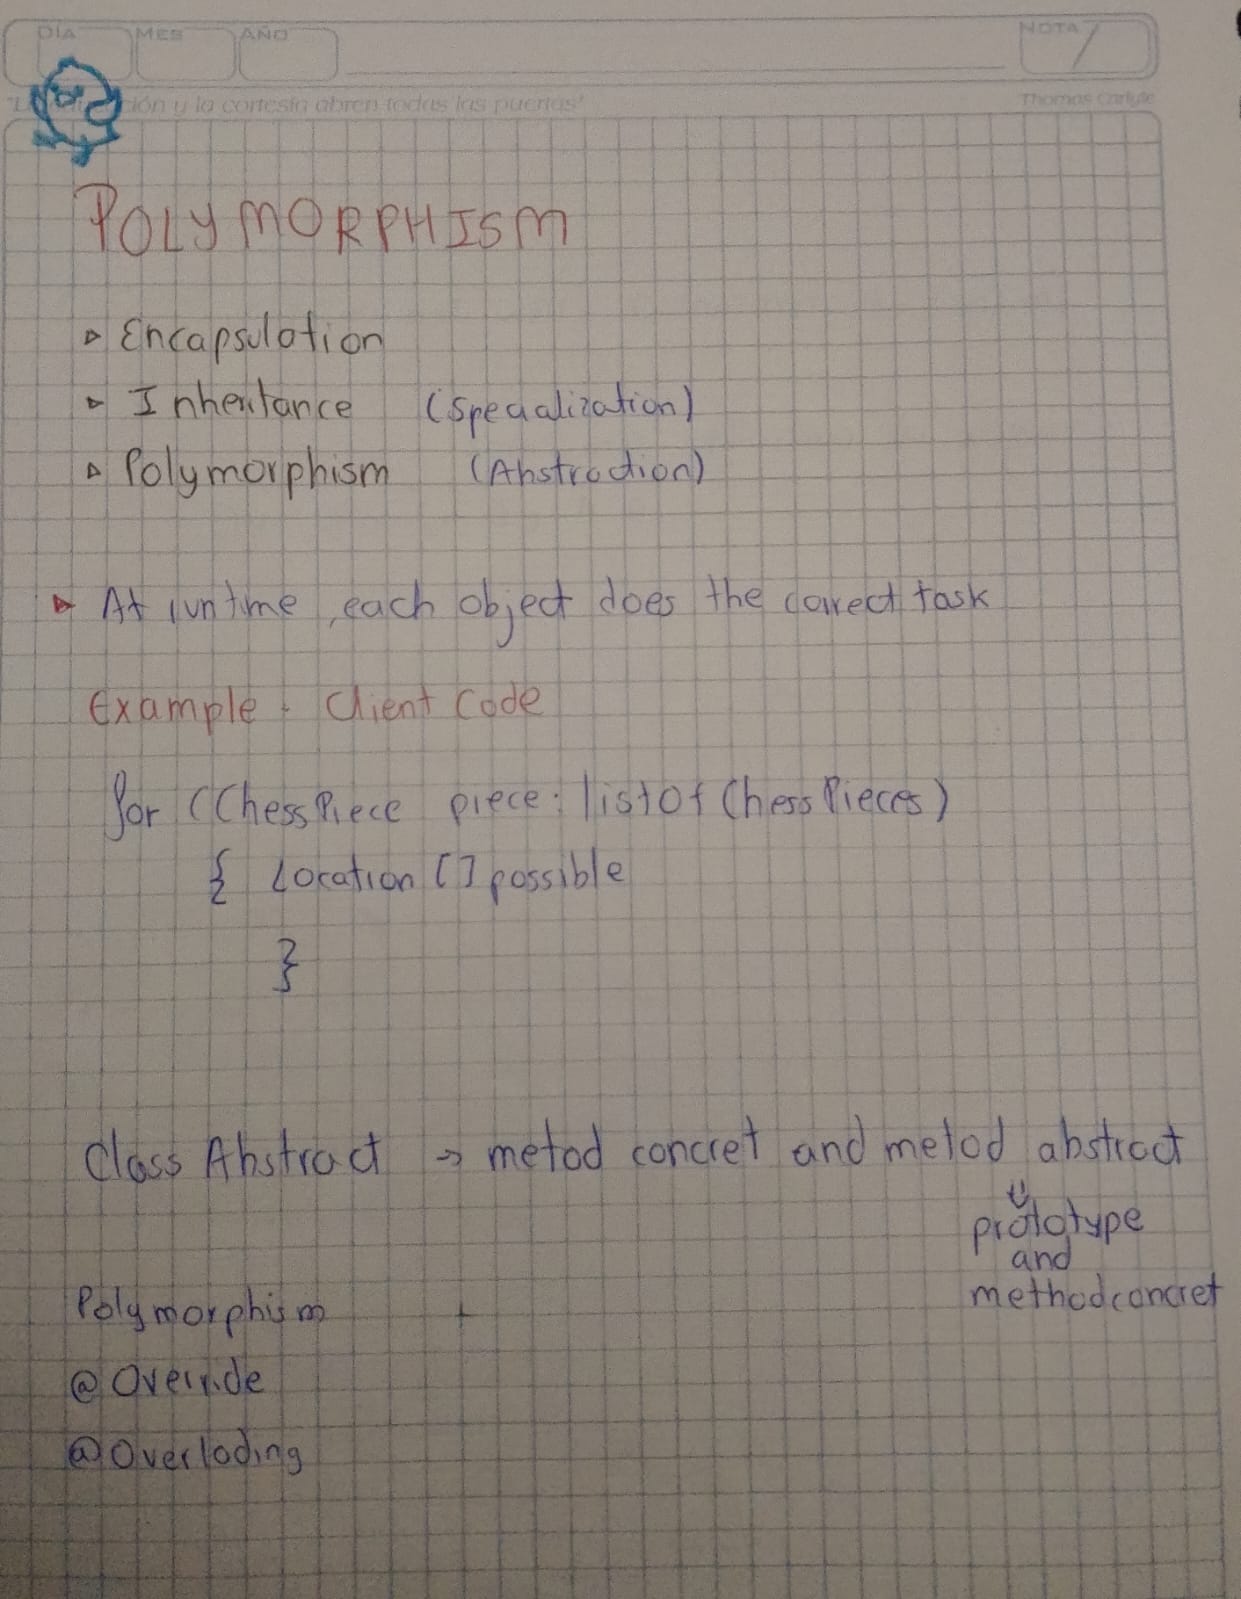 DÍA MES AÑO NOTA 7
ción y la cortesía abren todas las puertas" Thomas Carlyle
POLYMORPHISM
▹ Encapsulation
▹ Inheritance (Specialization)
▹ Polymorphism (Abstraction)
▸ At runtime, each object does the correct task
Example: Client Code
for (ChessPiece piece: listOfChessPieces)
{ Location [] possible
}
Class Abstract → metod concret and metod abstract
prototype
and
method concret
Polymorphism +
@Override
@Overloding